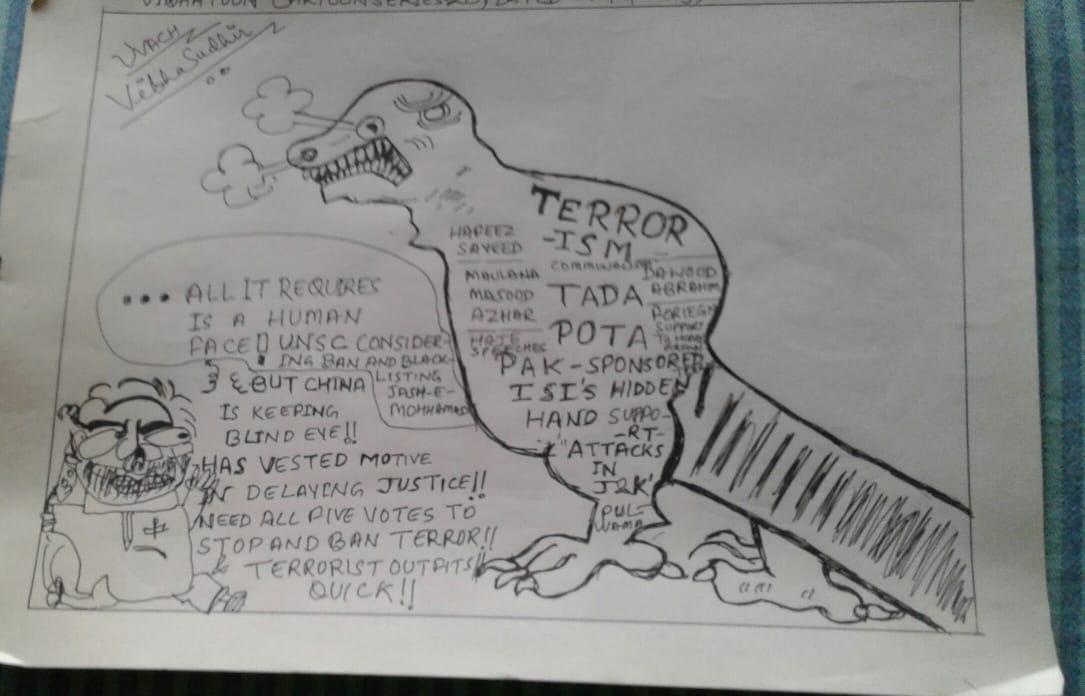 VIBHATOON CARTOON SERIES
UVACH
VibhaSudhir
TERROR
-ISM
HAFEEZ
SAYEED
MAULANA
MASOOD
AZHAR
HATE
SPEECHES
COMMUNALISM
TADA
POTA
DAWOOD
ABRAHIM
FORIEGN
SUPPORT
PAK-SPONSORER
ISI'S HIDDEN
HAND SUPPO-
-RT-
"ATTACKS
IN
J&K'
PUL-
WAMA
... ALL IT REQUIRES
IS A HUMAN
FACE UNSC CONSIDER-
ING BAN AND BLACK-
LISTING
JASH-E-
MOHHAMAD
& BUT CHINA
IS KEEPING
BLIND EYE!!
HAS VESTED MOTIVE
IN DELAYING JUSTICE!!
NEED ALL FIVE VOTES TO
STOP AND BAN TERROR!!
& TERRORIST OUTFITS!!
QUICK!!